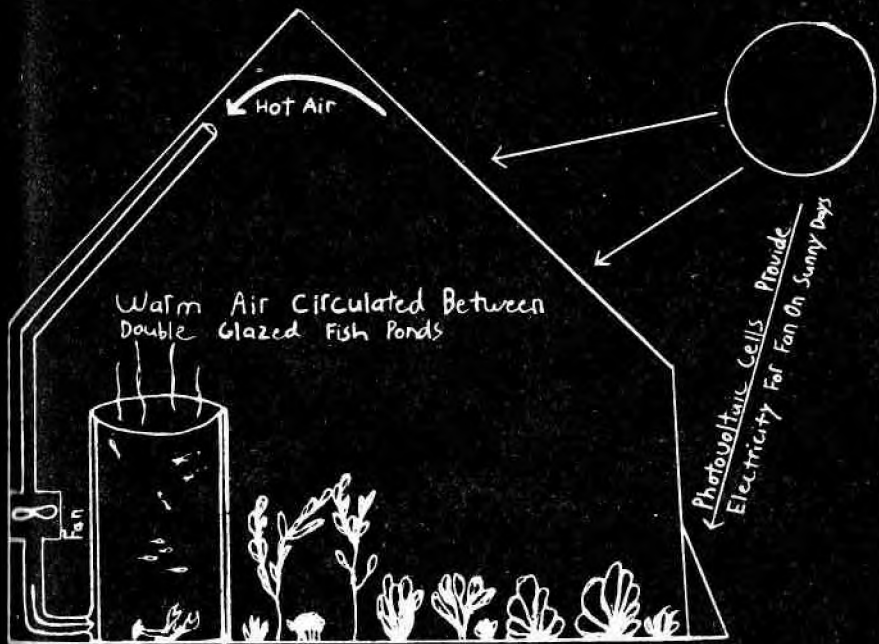 Hot Air
Warm Air Circulated Between
Double Glazed Fish Ponds
Fan
Photovoltaic Cells Provide
Electricity For Fan On Sunny Days